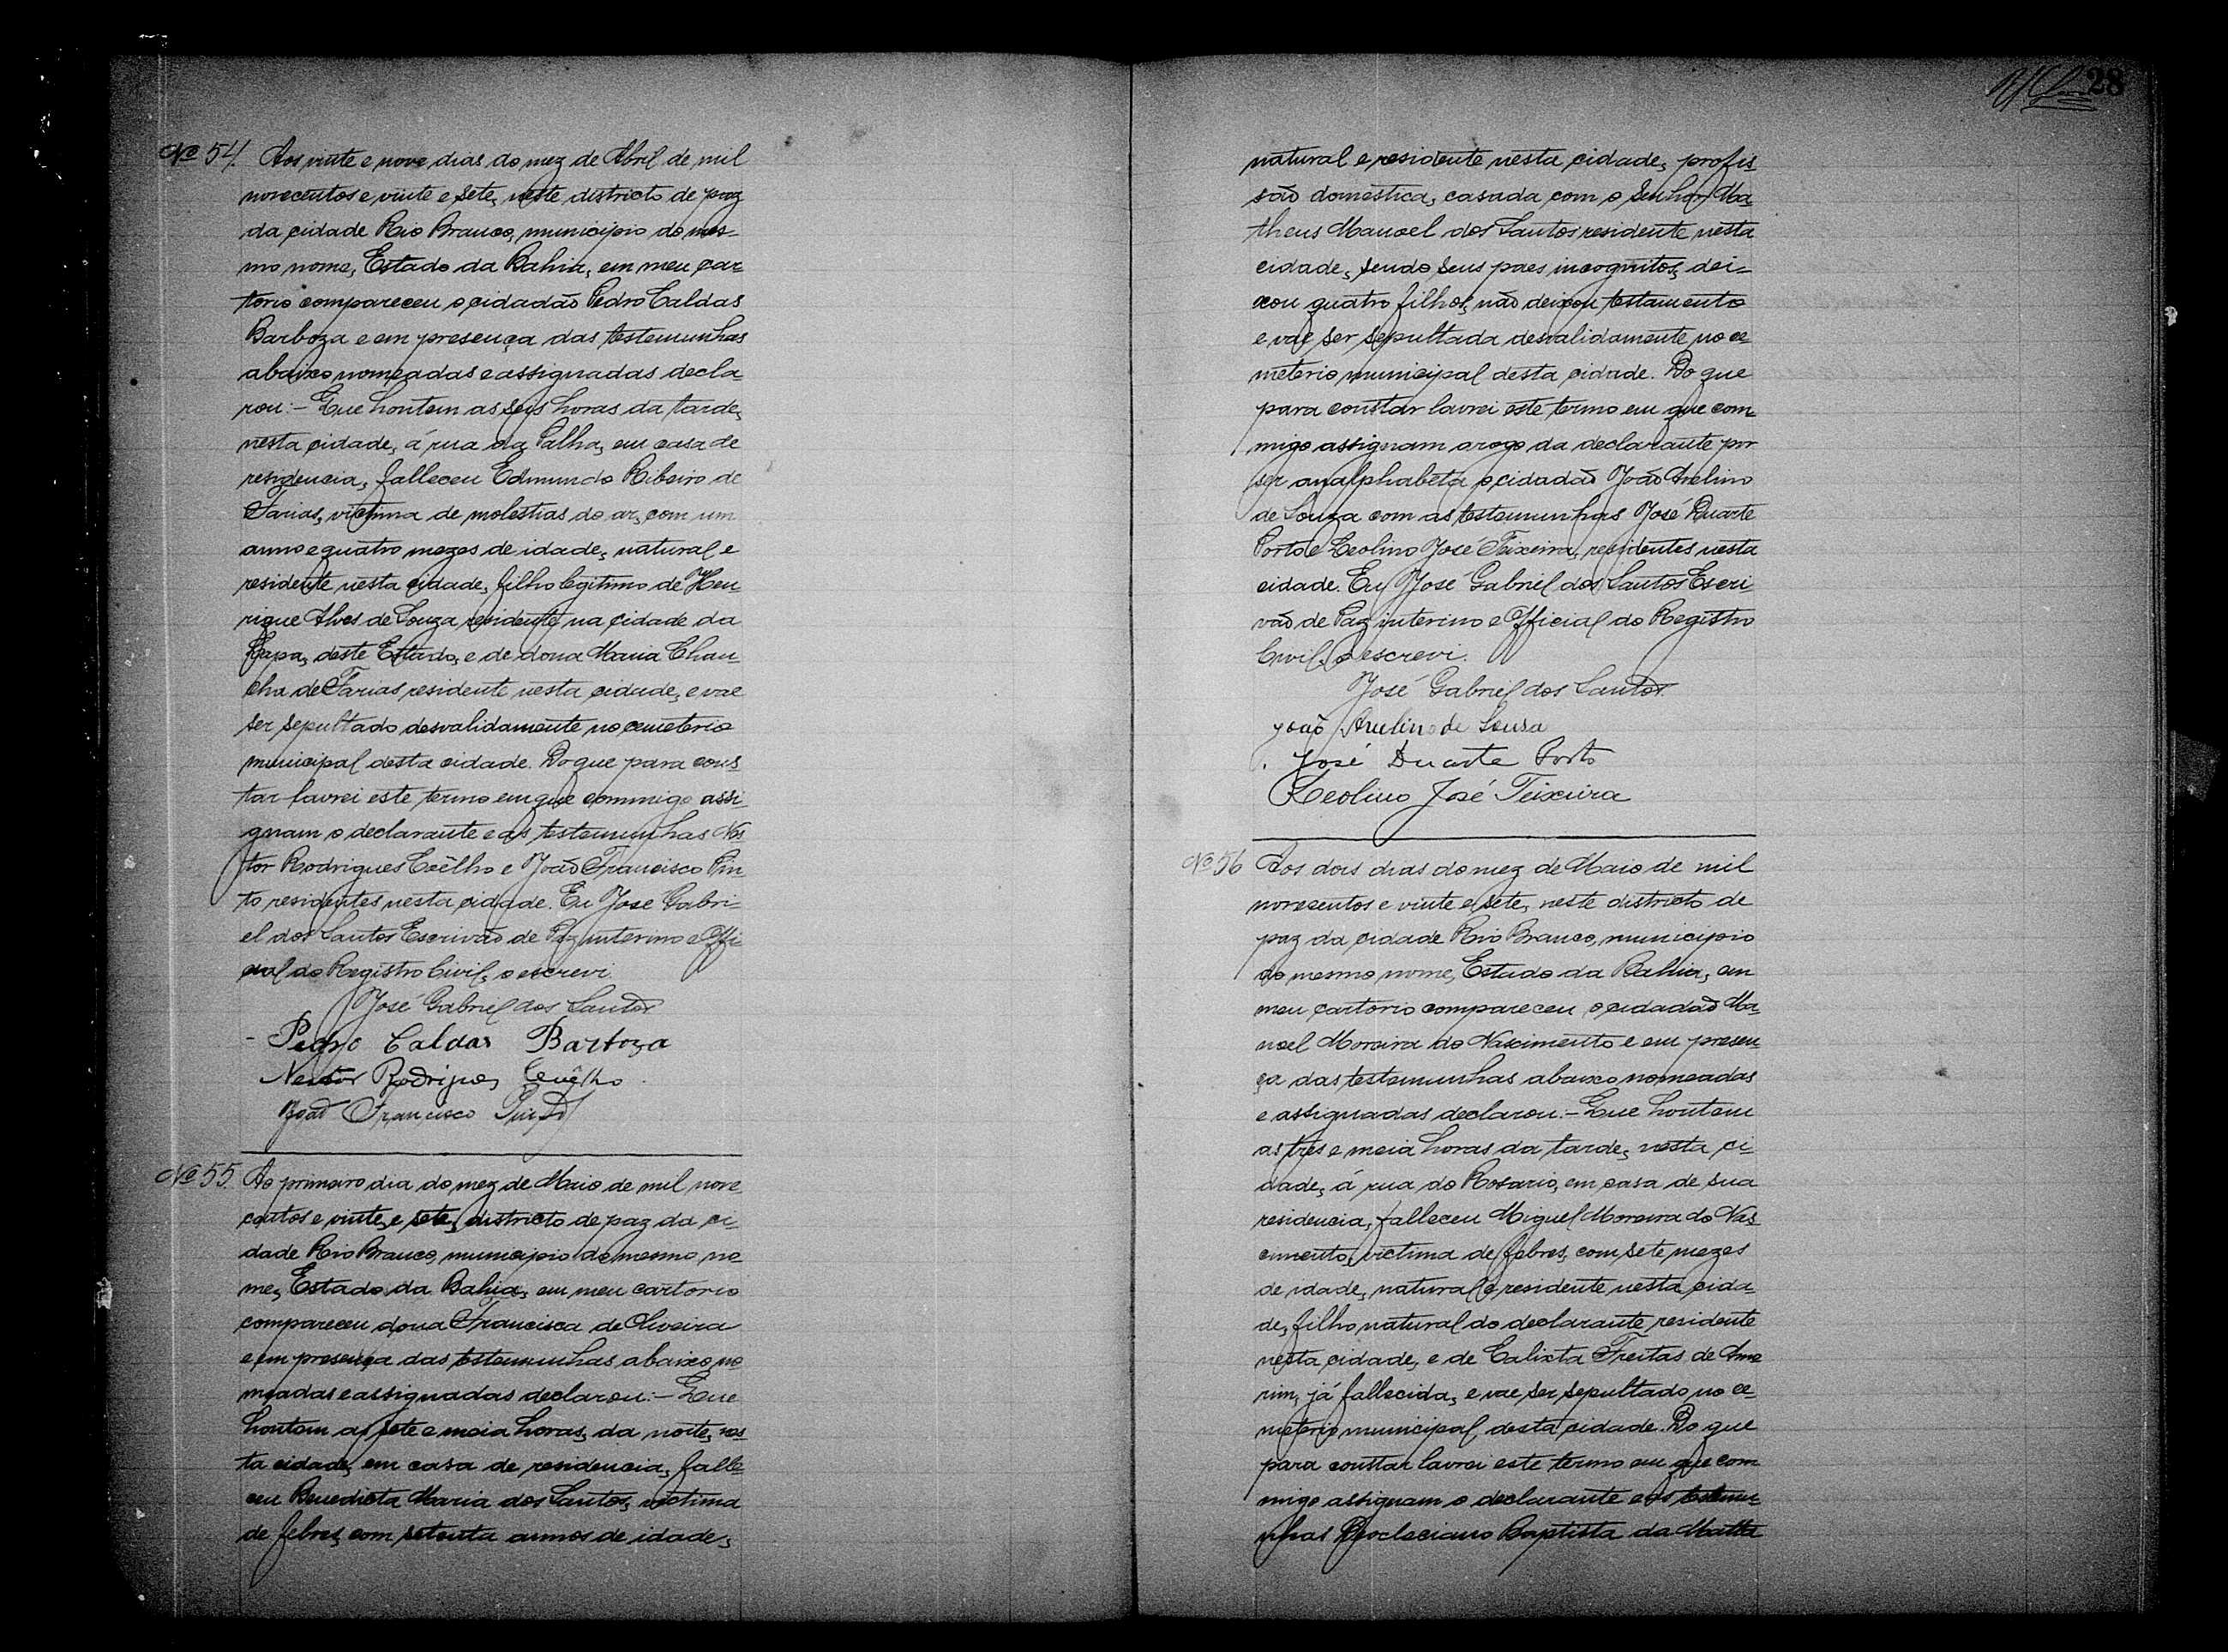 28
Nº 54. Aos vinte e nove dias do mez de Abril de mil
novecentos e vinte e sete, neste districto de paz
da cidade Rio Branco, municipio do mes-
mo nome, Estado da Bahia, em meu car-
torio compareceu o cidadão Pedro Caldas
Barboza e em presença das testemunhas
abaixo nomeadas e assignadas decla-
rou:- Que hontem as seis horas da tarde,
nesta cidade, á rua da Palha, em casa de
residencia, falleceu Edmundo Ribeiro de
Farias, victima de molestias do ar, com um
anno e quatro mezes de idade, natural e
residente nesta cidade, filho legitimo de Hen-
rique Alves de Souza residente na cidade da
Lapa, deste Estado, e de dona Maria Chan-
cha de Farias residente nesta cidade, e vae
ser sepultado desvalidamente no cemeterio
municipal desta cidade. Do que para cons-
tar lavrei este termo em que commigo assi-
gnam o declarante e as testemunhas Nes-
tor Rodrigues Coêlho e João Francisco Pin-
to, residentes nesta cidade. Eu José Gabri-
el dos Santos Escrivão de Paz interino e Offi-
cial do Registro Civil, o escrevi.
José Gabriel dos Santos
- Pedro Caldas Barboza
Nestor Rodrigues Coêlho.
João Francisco Pinto
Nº 55. Ao primeiro dia do mez de Maio de mil nove
centos e vinte e sete, districto de paz da ci-
dade Rio Branco, municipio do mesmo no-
me, Estado da Bahia, em meu cartorio
compareceu dona Francisca de Oliveira
e em presença das testemunhas abaixo no
meadas e assignadas declarou:- Que
hontem as sete e meia horas, da noite, nes-
ta cidade, em casa de residencia, falle-
ceu Benedicta Maria dos Santos, victima
de febres, com setenta annos de idade,
natural e residente nesta cidade, profis-
são domestica, casada com o Senhor Ma-
theus Manoel dos Santos residente nesta
cidade, sendo seus paes incognitos, dei-
xou quatro filhos, não deixou testamento
e vae ser sepultada desvalidamente no ce
meterio municipal desta cidade. Do que
para constar lavrei este termo em que com-
migo assignam arogo da declarante por
ser analphabeta o cidadão João Avelino
de Souza com as testemunhas José Duarte
Porto e Leolino José Teixeira, residentes nesta
cidade. Eu José Gabriel dos Santos Escri-
vão de Paz interino e Official do Registro
Civil, o escrevi.
José Gabriel dos Santos.
João Avelino de Sousa
José Duarte Porto
Leolino José Teixeira
Nº 56 Aos dois dias do mez de Maio de mil
novecentos e vinte e sete, neste districto de
paz da cidade Rio Branco, municipio
do mesmo nome, Estado da Bahia, em
meu cartorio compareceu o cidadão Ma-
noel Moreira do Nascimento e em presen-
ça das testemunhas abaixo nomeadas
e assignadas declarou:- Que hontem
as tres e meia horas da tarde, nesta ci-
dade, á rua do Rosario, em casa de sua
residencia, falleceu Miguel Moreira do Nas-
cimento, victima de febres, com sete mezes
de idade, natural e residente nesta cida-
de, filho natural do declarante residente
nesta cidade, e de Calixta Freitas de Amo
rim, já fallecida, e vae ser sepultado no ce-
meterio municipal desta cidade. Do que
para constar lavrei este termo em que com
migo assignam o declarante e as testemu-
nhas Deocleciano Baptista da Matta